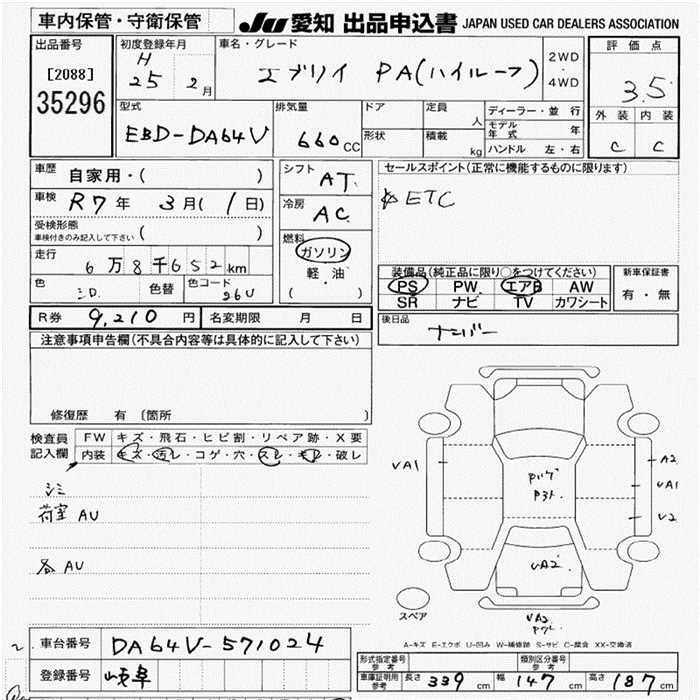 車内保管・守衛保管
JU 愛知 出品申込書 JAPAN USED CAR DEALERS ASSOCIATION
出品番号
[2088]
35296
初度登録年月
H
25 2月
車名・グレード
エブリイ PA(ハイルーフ)
2WD
・
4WD
評価点
3.5
外装 内装
C C
型式
EBD-DA64V
排気量
660cc
ドア
形状
定員
人
積載
kg
ディーラー・並行
モデル年式 年
ハンドル 左・右
車歴
自家用・( )
車検
R7年 3月(1日)
受検形態
車検付きのみ記入して下さい ( )
走行
6万8千652km
色
シロ. 色替 色コード
26U
シフト
AT.
冷房
AC
燃料
ガソリン
・
軽油
( )
セールスポイント(正常に機能するものに限ります)
ETC
装備品(純正品に限り○をつけてください)
PS PW エアB AW
SR ナビ TV カワシート
新車保証書
有・無
R券 9,210円 名変期限 月 日
後日品
ナンバー
注意事項申告欄(不具合内容等は具体的に記入して下さい)
修復歴 有 〔箇所 〕
検査員
記入欄
FW キズ・飛石・ヒビ割・リペア跡・X要
内装 キズ・汚レ・コゲ・穴・スレ・キレ・破レ
シミ
荷室 AU
各 AU
UA1
A2
UA1
U2
UA2
UA2
スペア
A-キズ E-エクボ U-凹み W-補修跡 S-サビ C-腐食 XX-交換済
2
車台番号 DA64V-571024
登録番号 岐阜
形式指定番号
参考
類別区分番号
参考
車庫証明用
参考
長さ 339cm 幅 147cm 高さ 187cm